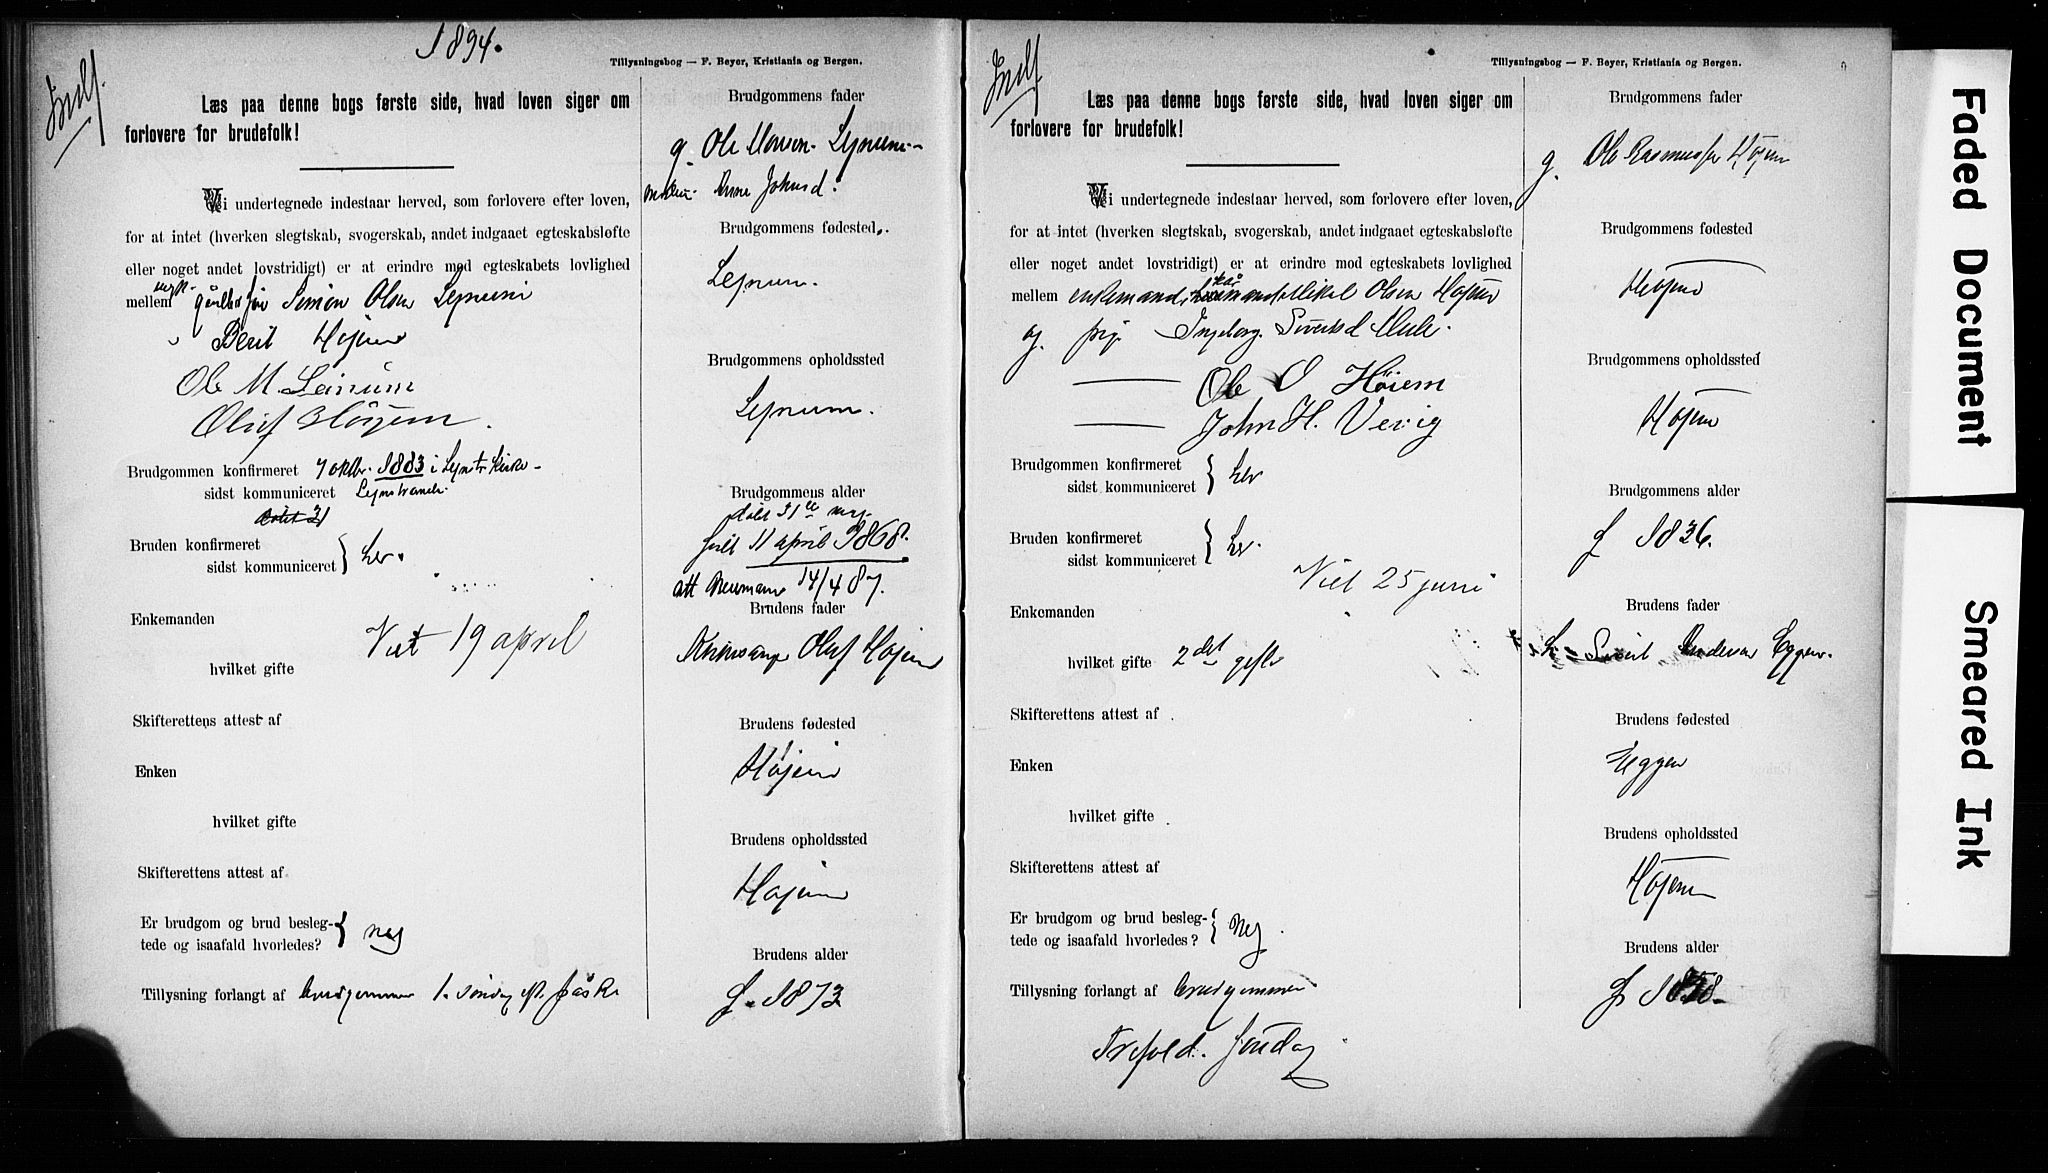 1894.
Indf.
Tillysningsbog — F. Beyer, Kristiania og Bergen.
Læs paa denne bogs første side, hvad loven siger om
forlovere for brudefolk!
Vi undertegnede indestaar herved, som forlovere efter loven,
for at intet (hverken slegtskab, svogerskab, andet indgaaet egteskabsløfte
eller noget andet lovstridigt) er at erindre mod egteskabets lovlighed
mellem Simon Olsen Lejnum
Berit Højem
Ole M. Leinum
Oluf Höyem.
Brudgommen konfirmeret 7 oktbr. 1883 i kirke
sidst kommuniceret
Bruden konfirmeret
sidst kommuniceret } her.
Enkemanden
Viet 19 april
hvilket gifte
Skifterettens attest af
Enken
hvilket gifte
Skifterettens attest af
Er brudgom og brud beslegtede og isaafald hvorledes? } nej
Tillysning forlangt af brudgommen 1. søndag eft. påske
Brudgommens fader
g. Ole Lejnum
Anne Johnsd.
Brudgommens fødested
Lejnum.
Brudgommens opholdssted
Lejnum.
Brudgommens alder
døbt 31te maj
født 11 april 1868.
att 14/4 87.
Brudens fader
Oluf Højem
Brudens fødested
Højem
Brudens opholdssted
Højem
Brudens alder
f. 1873
Indf
Tillysningsbog — F. Beyer, Kristiania og Bergen.
Læs paa denne bogs første side, hvad loven siger om
forlovere for brudefolk!
Vi undertegnede indestaar herved, som forlovere efter loven,
for at intet (hverken slegtskab, svogerskab, andet indgaaet egteskabsløfte
eller noget andet lovstridigt) er at erindre mod egteskabets lovlighed
mellem enkemand Mikal Olsen Højem
og pige Ingeborg Sivertsd
Ole O Höiem
John H. Vevig
Brudgommen konfirmeret
sidst kommuniceret } her
Bruden konfirmeret
sidst kommuniceret } her.
Viet 25 juni
Enkemanden
hvilket gifte 2det gifte
Skifterettens attest af
Enken
hvilket gifte
Skifterettens attest af
Er brudgom og brud beslegtede og isaafald hvorledes? } Nej.
Tillysning forlangt af brudgommen
Trefold. Søndag
Brudgommens fader
g. Ole Rasmussen Højem
Brudgommens fødested
Højem
Brudgommens opholdssted
Højem
Brudgommens alder
f 1836.
Brudens fader
Sivert Andersen Eggen.
Brudens fødested
Eggen
Brudens opholdssted
Højem
Brudens alder
Faded Document
Smeared Ink